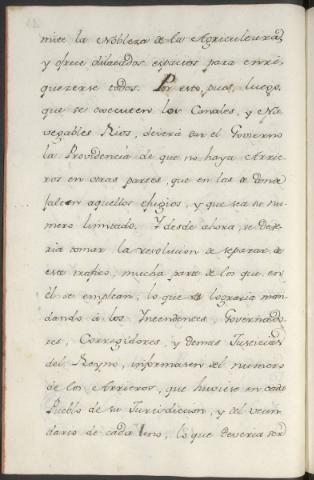 mite la Nobleza de la Agricultura,
y ofrece dilatados espacios para enri-
quezerse todos. Por esto pues, luego
que se executen los Canales, y Na-
vegables Rios, deverá ser el Govierno
la Providencia de que no haya Arrie-
ros en otras partes, que en las a donde
falten aquellos, y que sea su nu-
mero limitado. Y desde ahora, se deve-
ria tomar la resolucion de separar de
este trafico, mucha parte de los que en
él se emplean, lo que se lograria man-
dando á los Yntendentes, Governado-
res, Corregidores, y demas Justicias
del Reyno, informasen del numero
de los Arrieros, que huviese en cada
Pueblo de su Jurisdicion, y del vecin-
dario de cada uno, lo que deveria ser